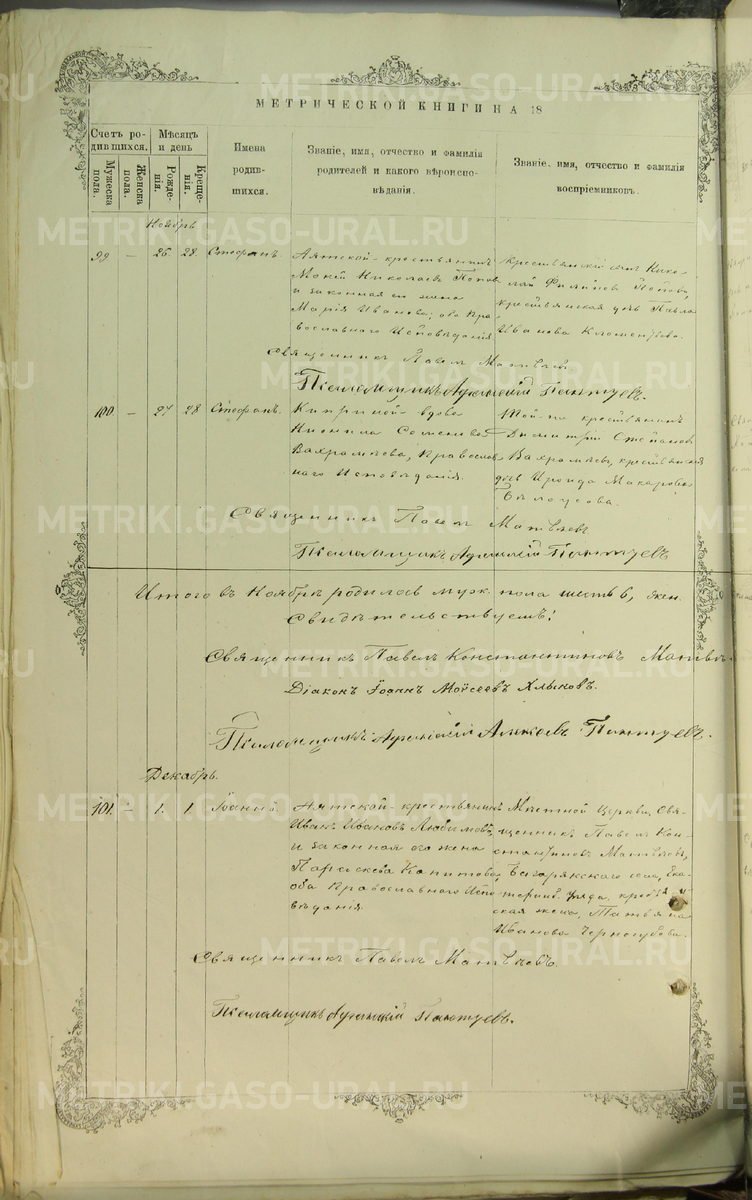 МЕТРИЧЕСКОЙ КНИГИ НА 18
Счетъ родившихся.
Мужеска пола.
Женска пола.
Мѣсяцъ и день
Рожденія.
Крещенія.
Имена родившихся.
Званіе, имя, отчество и фамилія родителей и какого вѣроисповѣданія.
Званіе, имя, отчество и фамилія воспріемниковъ.
Ноябрь
99 — 26 28 Стефанъ
Аятской крестьянинъ
Мокій Николаевъ Попов
и законная его жена
Марія Иванова; оба Пра
вославнаго Исповѣданія
крестьянскій сынъ Нико
лай Филипов Попов,
крестьянская дочь Павла
Иванова
Священникъ Павелъ Матвѣевъ
Псаломщикъ Афанасій Пантуевъ.
100 — 27 28 Стефанъ.
вдова
Семенова
Вахрамѣева, Православ
наго Исповѣданія.
Той-же крестьянинъ
Димитрій Степановъ
Вахрамѣевъ, крестьянская
дочь Ироида Макарова
Бѣлоусова.
Священникъ Павелъ Матвѣевъ
Псаломщикъ Афанасій Пантуевъ
Итого въ Ноябрѣ родилось муж. пола шесть 6, жен.
Свидѣтельствуемъ:
Священникъ Павелъ Константиновъ Матвѣ
Діаконъ Іоаннъ Моѵсеевъ Хлыновъ.
Псаломщикъ Афанасій Алексѣевъ Пантуевъ.
Декабрь.
101. — 1. 1. Іоаннъ
Аятской крестьянинъ
Иванъ Ивановъ Любимовъ,
и законная его жена
Параскева Капитонова,
оба Православнаго Испо
вѣданія.
Мѣстной Церкви, Свя
щенникъ Павелъ Кон
стантиновъ Матвѣевъ,
Багарякскаго села, Ека
терин. уѣзда,
ская жена, Татьяна
Иванова Черногубова.
Священникъ Павелъ Матвѣевъ.
Псаломщикъ Афанасій Пантуевъ.
METRIKI.GASO-URAL.RU